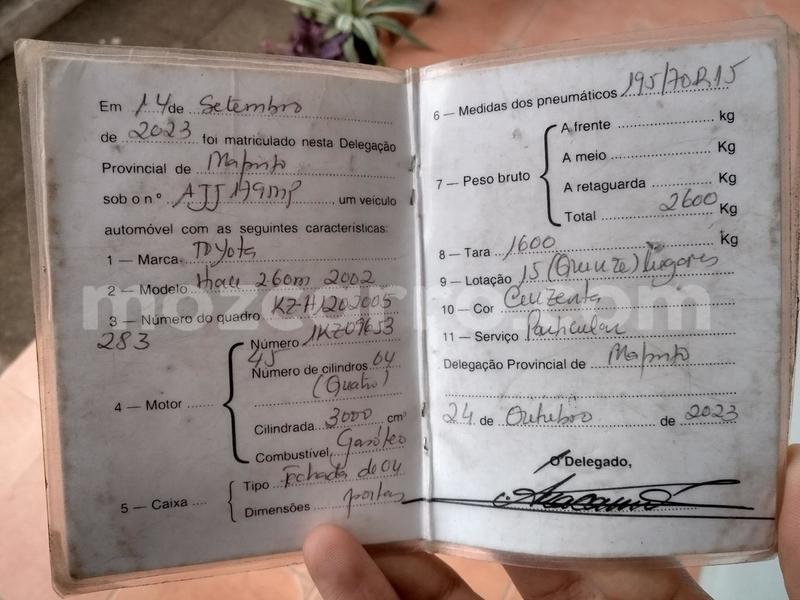 Em 14 de Setembro
de 2023 foi matriculado nesta Delegação
Provincial de Maputo
sob o nº AJJ 179 MP, um veículo
automóvel com as seguintes características:
1 — Marca Toyota
2 — Modelo 2002
3 — Número do quadro KZH1202005
283
4 — Motor
Número 1KZ09653
45
Número de cilindros 04
(Quatro)
Cilindrada 3000 cm³
Combustível Gasóleo
5 — Caixa
Tipo Fechada de 04
Dimensões portas
6 — Medidas dos pneumáticos 195/70R15
7 — Peso bruto
A frente kg
A meio Kg
A retaguarda Kg
Total 2600 Kg
8 — Tara 1600 Kg
9 — Lotação 15 (Quinze) lugares
10 — Cor Cinzenta
11 — Serviço Particular
Delegação Provincial de Maputo
24 de Outubro de 2023
O Delegado,
mozcarro.com